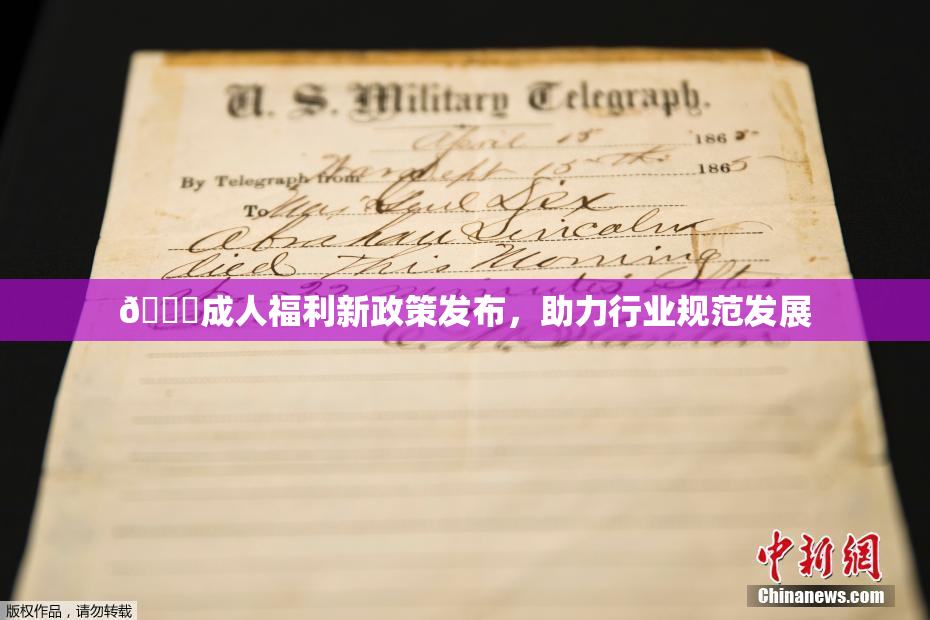 U. S. Military Telegraph.
April 15 1865
By Telegraph from War Dept 15th 1865
To Maj Genl Dix
Abraham Lincoln
died This Morning
22 minutes after
ð成人福利新政策发布，助力行业规范发展
E. M. Stanton
中新网
Chinanews.com
版权作品，请勿转载